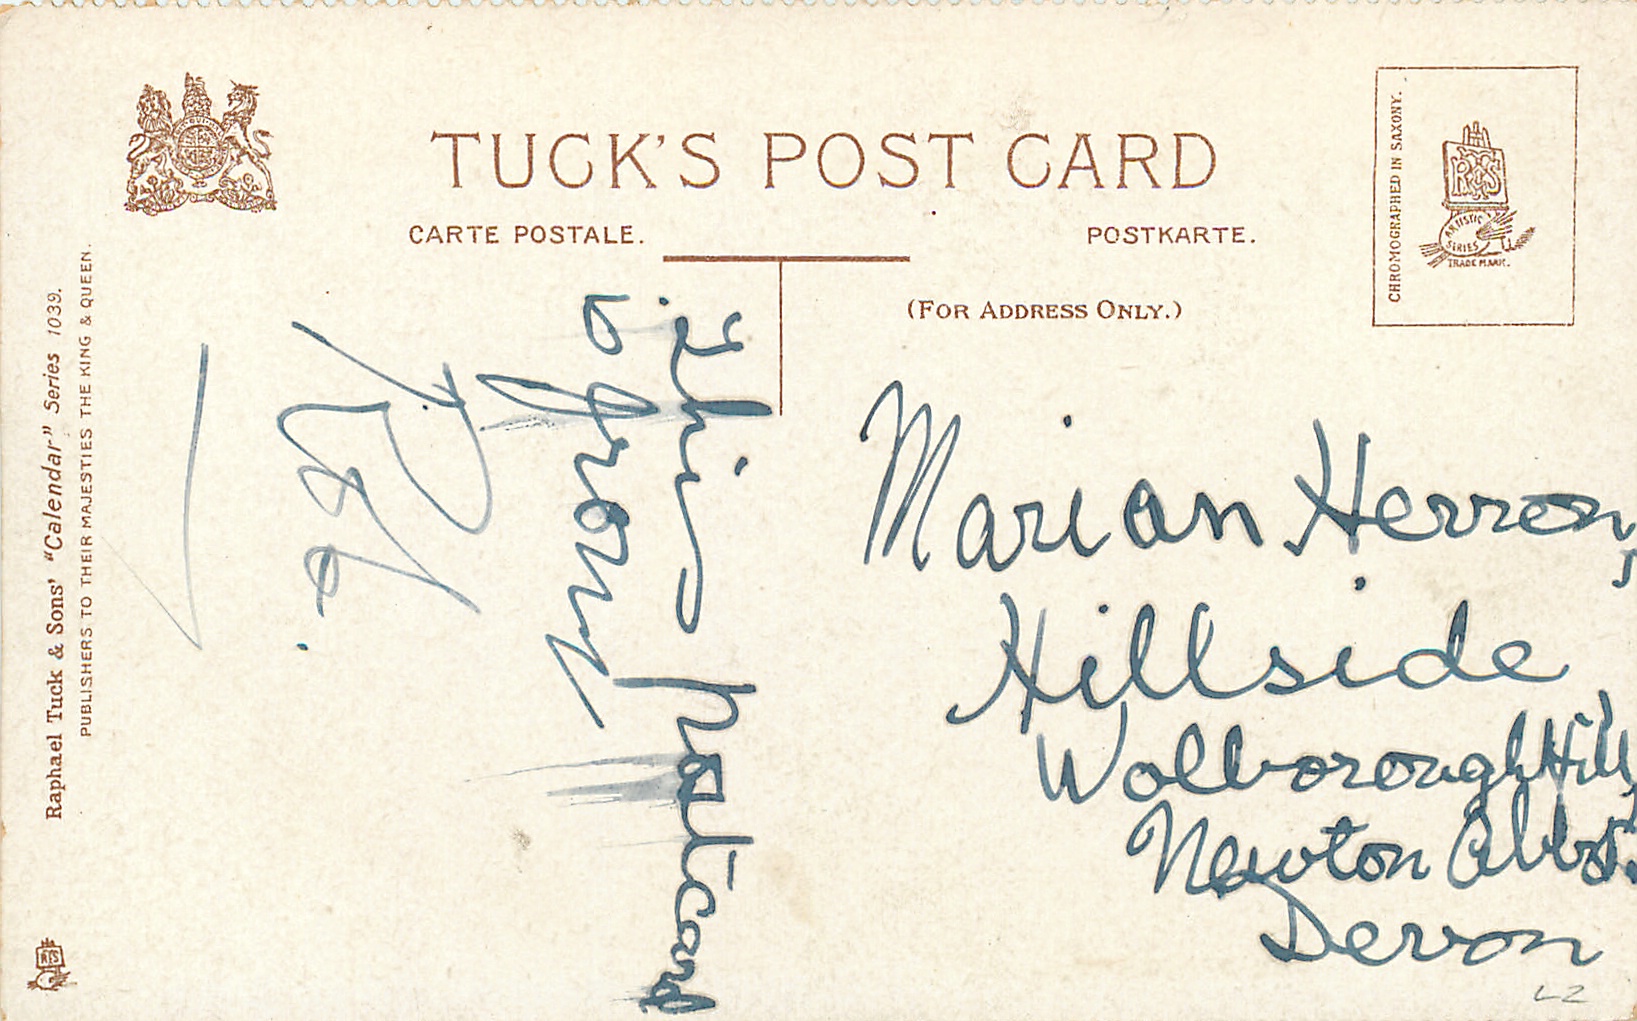 TUCK'S POST CARD
CARTE POSTALE.
POSTKARTE.
(FOR ADDRESS ONLY.)
CHROMOGRAPHED IN SAXONY.
R T & S
ARTISTIC
SERIES
TRADE MARK.
Raphael Tuck & Sons' "Calendar" Series 1039.
PUBLISHERS TO THEIR MAJESTIES THE KING & QUEEN.
RTS
This postcard
is from
Marian Herron,
Hillside
Wolborough Hill,
Newton Abbot.
Devon
L2